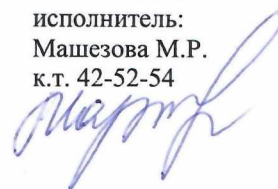 исполнитель:
Машезова М.Р.
к.т. 42-52-54